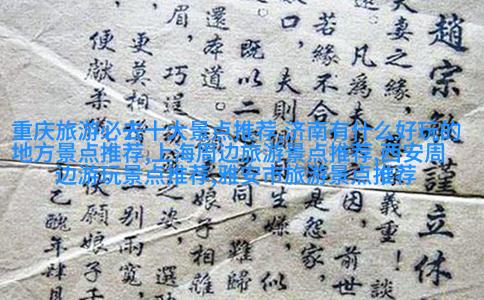 重庆旅游必去十大景点推荐,济南有什么好玩的
地方景点推荐,上海周边旅游景点推荐,西安周
边游玩景点推荐,雅安市旅游景点推荐
趙宗謹立休
夫妻之緣義重！談
夫。凡為夫因，前世
若緣不合是怨家，
口，夫則生嫌，似
既以二同，難歸
還本道。娘子相離
眉，巧逞之姿，選
更莫相別兩寬，
便獻柔伏願娘子千
己醜年肆月